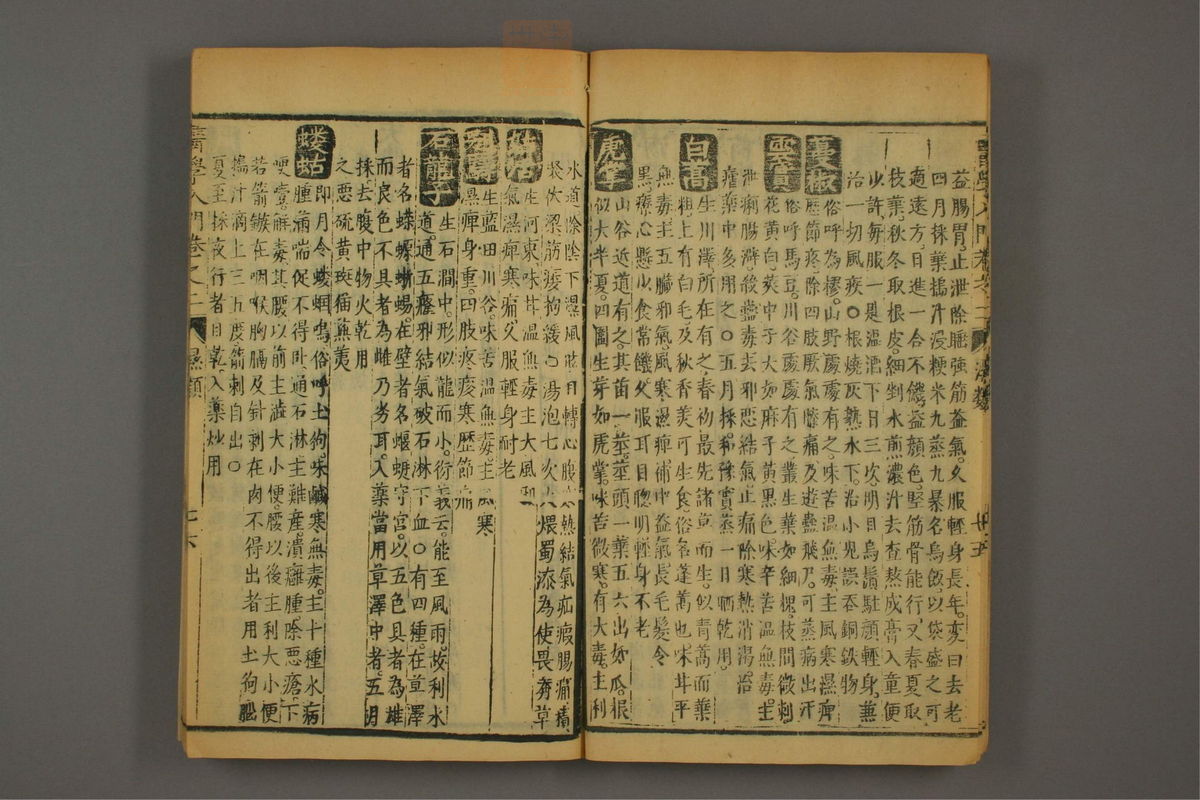 益腸胃止泄除睡強筋益氣久服輕身長年変曰去老
四月採葉搗汁浸粳米九蒸九暴名烏飯以袋盛之可
適遠方日進一合不饑益顏色堅筋骨能行又春夏取
枝葉秋冬取根皮細剉水煎濃汁去查熬成膏入童便
少許每服一匙溫酒下日三次明目烏鬚駐顏輕身兼
治一切風疾○根燒灰熱水下治小兒誤吞銅鉄物
蔓椒
俗呼為樛山野處處有之味苦溫無毒主風寒濕痺
歷節疼除四肢厥氣膝痛及遊蠱飛尸可蒸病出汗
雲實
俗呼馬豆川谷處處有之叢生葉如細槐枝間微刺
花黃白莢中子大如麻子黃黑色味辛苦溫無毒主
泄痢腸澼殺蠱毒去邪惡結氣止痛除寒熱消渴治
瘧藥中多用之○五月採和豫實蒸一日晒乾用
白蒿
生川澤所在有之春初最先諸草而生似青蒿而葉
粗上有白毛及秋香美可生食俗名蓬蒿也味甘平
無毒主五臟邪氣風寒濕痺補中益氣長毛髮令
黑療心懸少食常饑久服耳目聰明輕身不老
虎掌
山谷近道有之其苗一莖莖頭一葉五六出如瓜根
似大半夏四圍生芽如虎掌味苦微寒有大毒主利
水道除陰下濕風眩目轉心腹寒熱結氣疝瘕腸痛積
聚伏梁筋痿拘緩○湯泡七次火煨蜀漆為使畏莽草
生河東味甘溫無毒主大風
氣濕痺寒痛久服輕身耐老
生藍田川谷味苦溫無毒主風寒
濕痺身重四肢疼痠寒歷節痛
石龍子
生石澗中形似龍而小衍義云能至風雨故利水
道通五癃邪結氣破石淋下血○有四種在草澤
者名蠑螈蜥蜴在壁者名蝘蜓守宮以五色具者為雄
而良色不具者為雌乃劣耳入藥當用草澤中者五月
採去腹中物火乾用
之惡硫黃斑猫蕪荑
螻蛄
即月令螻蟈鳴俗呼土狗味鹹寒無毒主十種水病
腫滿喘促不得卧通石淋主難產潰癰腫除惡瘡下
哽噎解毒其腰以前主澁大小便腰以後主利大小便
若箭鏃在咽喉胸膈及針刺在肉不得出者用土狗腦
搗汁滴上三五度箭刺自出○
夏至採夜行者日乾入藥炒用
醫學入門 卷之二 濕類 廿五
醫學入門 卷之二 濕類 廿六